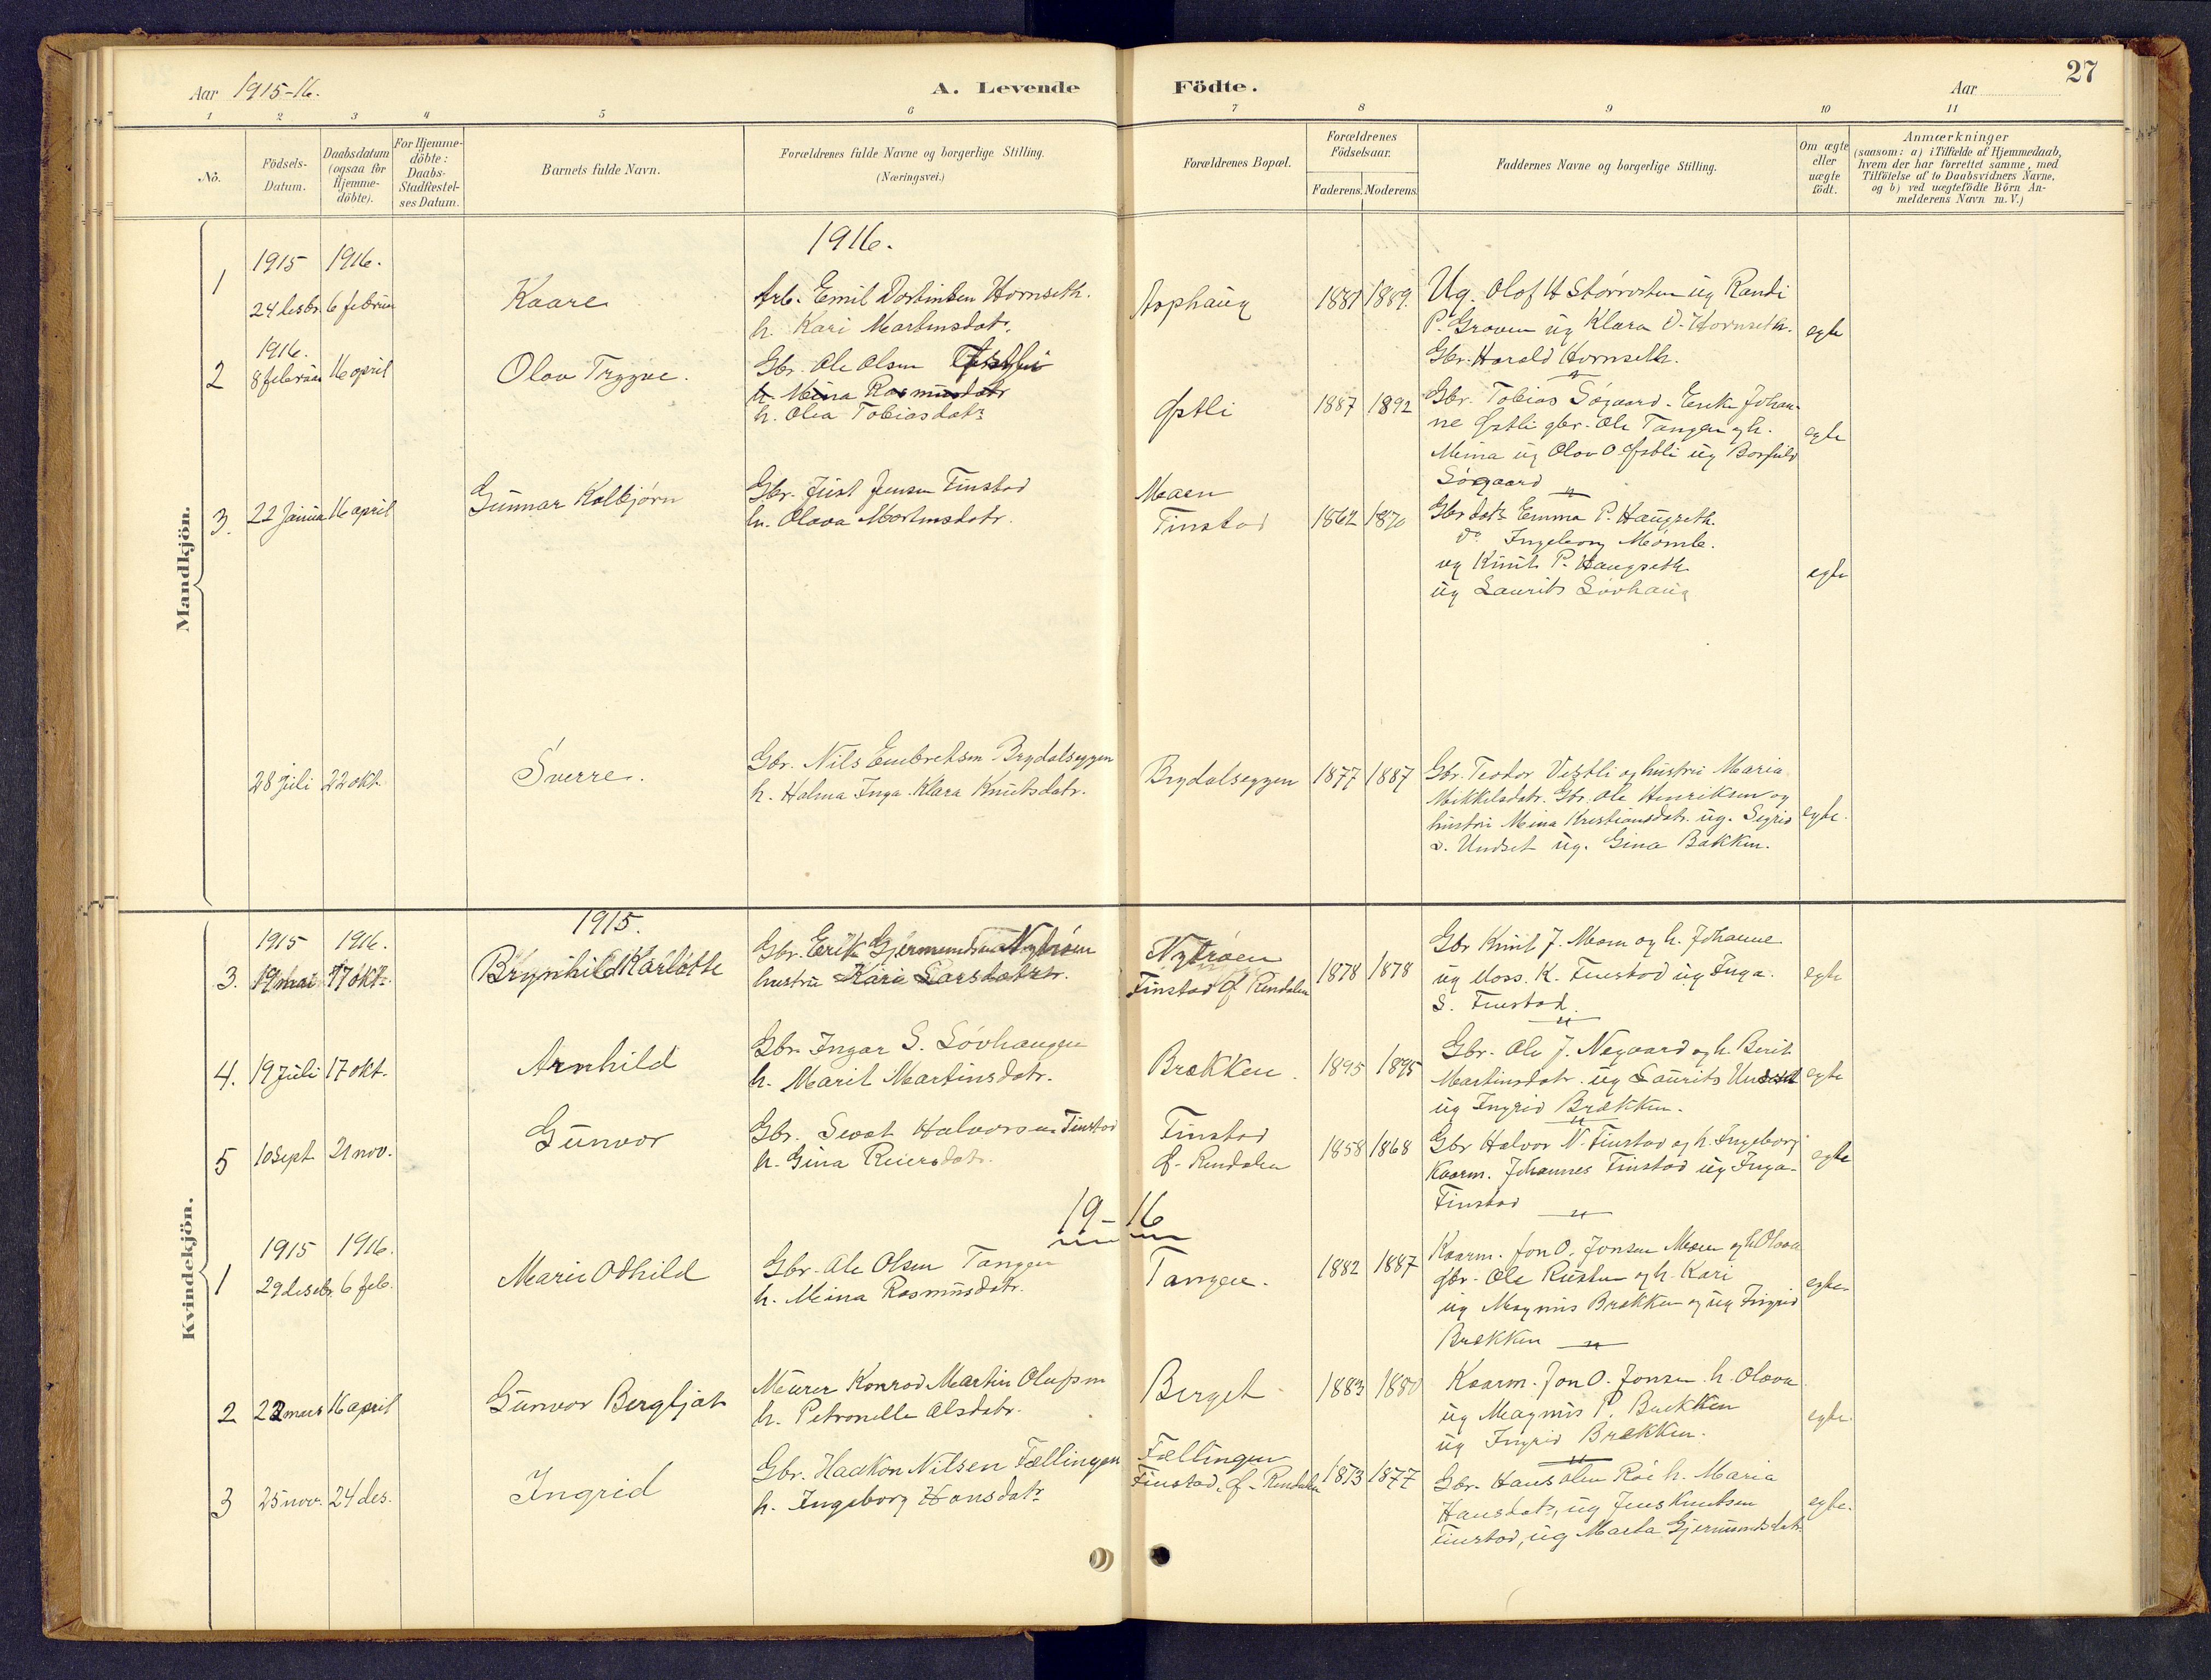 Aar 1915-16.
A. Levende
Födte.
Aar
27
1 2 3 4 5 6 7 8 9 10 11
No.
Födsels-
Datum.
Daabsdatum
(ogsaa for
Hjemme-
döbte).
For Hjemme-
döbte:
Daabs-
Stadfæstel-
ses Datum.
Barnets fulde Navn.
Forældrenes fulde Navne og borgerlige Stilling.
(Næringsvei.)
Forældrenes Bopæl.
Forældrenes
Födselsaar.
Faderens. Moderens.
Faddernes Navne og borgerlige Stilling.
Om ægte
eller
uægte
födt.
Anmærkninger
(saasom: a) i Tilfælde af Hjemmedaab,
hvem der har forrettet samme, med
Tilföielse af to Daabsvidners Navne,
og b) ved uægtefödte Börn An-
melderens Navn m. V.)
Mandkjön.
1916.
1
1915 1916.
24 desbr. 6 februar
Kaare
Arb. Emil Hornseth.
h. Kari Martinsdatr.
Asphaug
1881 1889.
Ug. Olof H Storrosten ug Randi
P. Groven ug Klara O. Hornseth.
Gbr. Harald Hornseth.
egte
2
1916.
8 februar 16 april
Olav Tryggve.
Gbr. Ole Olsen
h. Meina Rasmusdatr
h. Olea Tobiasdatr
Østli
1887 1892
Gbr. Tobias Søgaard. Enke Johan-
ne Østli gbr. Ole Tangen og h.
Meina ug Olav O. Østli ug Borghild
Søgaard
egte
3.
22 Janua 16 april
Gunnar Kolbjørn
Gbr. Just Jensen Finstad
h. Olava Mortensdatr.
Moen
Finstad
1862 1870
Gbr datr Emma P. Haugseth.
do Ingeborg Momb.
ug Knut P. Haugseth
ug Laurits Løvhaug
egte
28 juli 22 okt.
Sverre.
Gbr. Nils Embretsen Brydalseggen
h. Halma Inga Klara Knutsdatr.
Brydalseggen
1877 1887
Gbr. Teodor Vestli og hustru Maria
Mikkelsdatr. Gbr. Ole Henriksen og
hustru Meina Kristiansdatr. ug. Sigrid
O. Undset ug. Gina Bakken.
egte.
Kvindekjön.
1915.
3.
1915 1916.
19 mai 17 okt.
Brynhild Karlotte
Gbr. Erik Gjermundsen Nytrøen
hustru Kari Larsdatter.
Nytrøen
Finstad Ø. Rendalen
1878 1878
Gbr Knut J. Moen og h. Johanne
ug Moss. K. Finstad ug Inga.
S. Finstad.
egte
4.
19 Juli 17 okt.
Arnhild
Gbr. Ingar S. Løvhaugen
h. Marit Martinsdatr.
Brækken.
1895 1895
Gbr. Ole J. Nygaard og h. Berit
Martinsdatr. ug Laurits Undset
ug Ingrid Brækken.
egte
5
10 sept 21 nov.
Gunvor
Gbr. Sivat Halvorsen Finstad
h. Gina Reiersdatr.
Finstad
Ø. Rendalen
1858 1868
Gbr Halvor N. Finstad og h. Ingeborg
Kaarm. Johannes Finstad ug Inga
Finstad
egte
19-16
1
1915 1916.
29 desebr. 6 feb.
Marie Odhild
Gbr. Ole Olsen Tangen
h. Meina Rasmusdatr.
Tangen.
1882 1887
Kaarm. Jon O. Jonsen Moen og h Olava
gbr. Ole Rusten og h. Kari
ug Magnus Brækken og ug Ingrid
Brækken
egte
2
22 mars 16 april
Gunvor Bergljot
Meurer Konrad Martin Olufsen
h. Petronelle Olsdatr.
Berget
1883 1880
Kaarm. Jon O. Jonsen h. Olava
ug Magnus P. Brækken
ug Ingrid Brækken.
egte
3
25 nov. 24 des.
Ingrid
Gbr. Haakon Nilsen Fællingen
h. Ingeborg Hansdatr
Fællingen
Finstad. Ø. Rendalen
1873 1877
Gbr. Hans Olsen Røe h. Maria
Hansdatr, ug Jens Knutsen
Finstad, ug Marta Gjermundsdatr
egte.